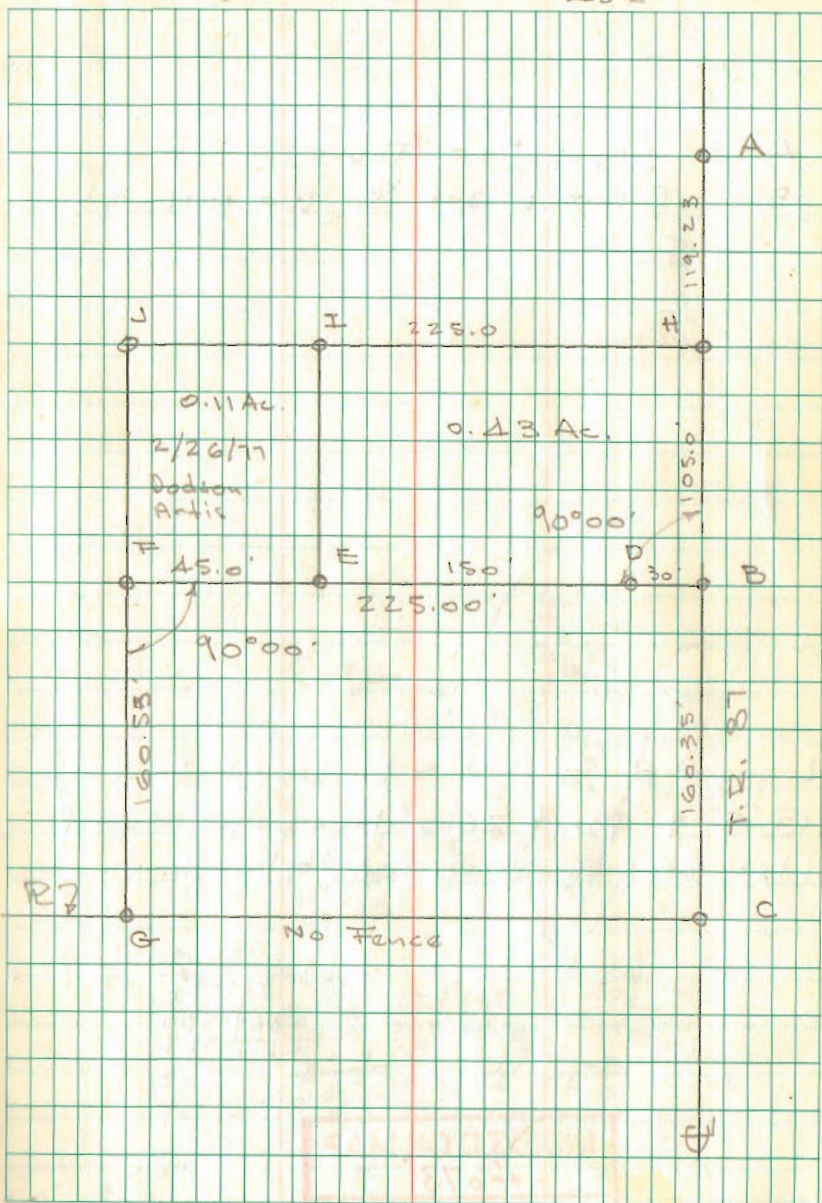 A
119.23
J
I
225.0
H
0.11 Ac.
0.43 Ac.
2/26/77
Dodson
Artis
105.0'
90°00'
F
45.0'
E
150'
D
30'
B
225.00'
90°00'
160.35'
T.R. 87
G
No Fence
C